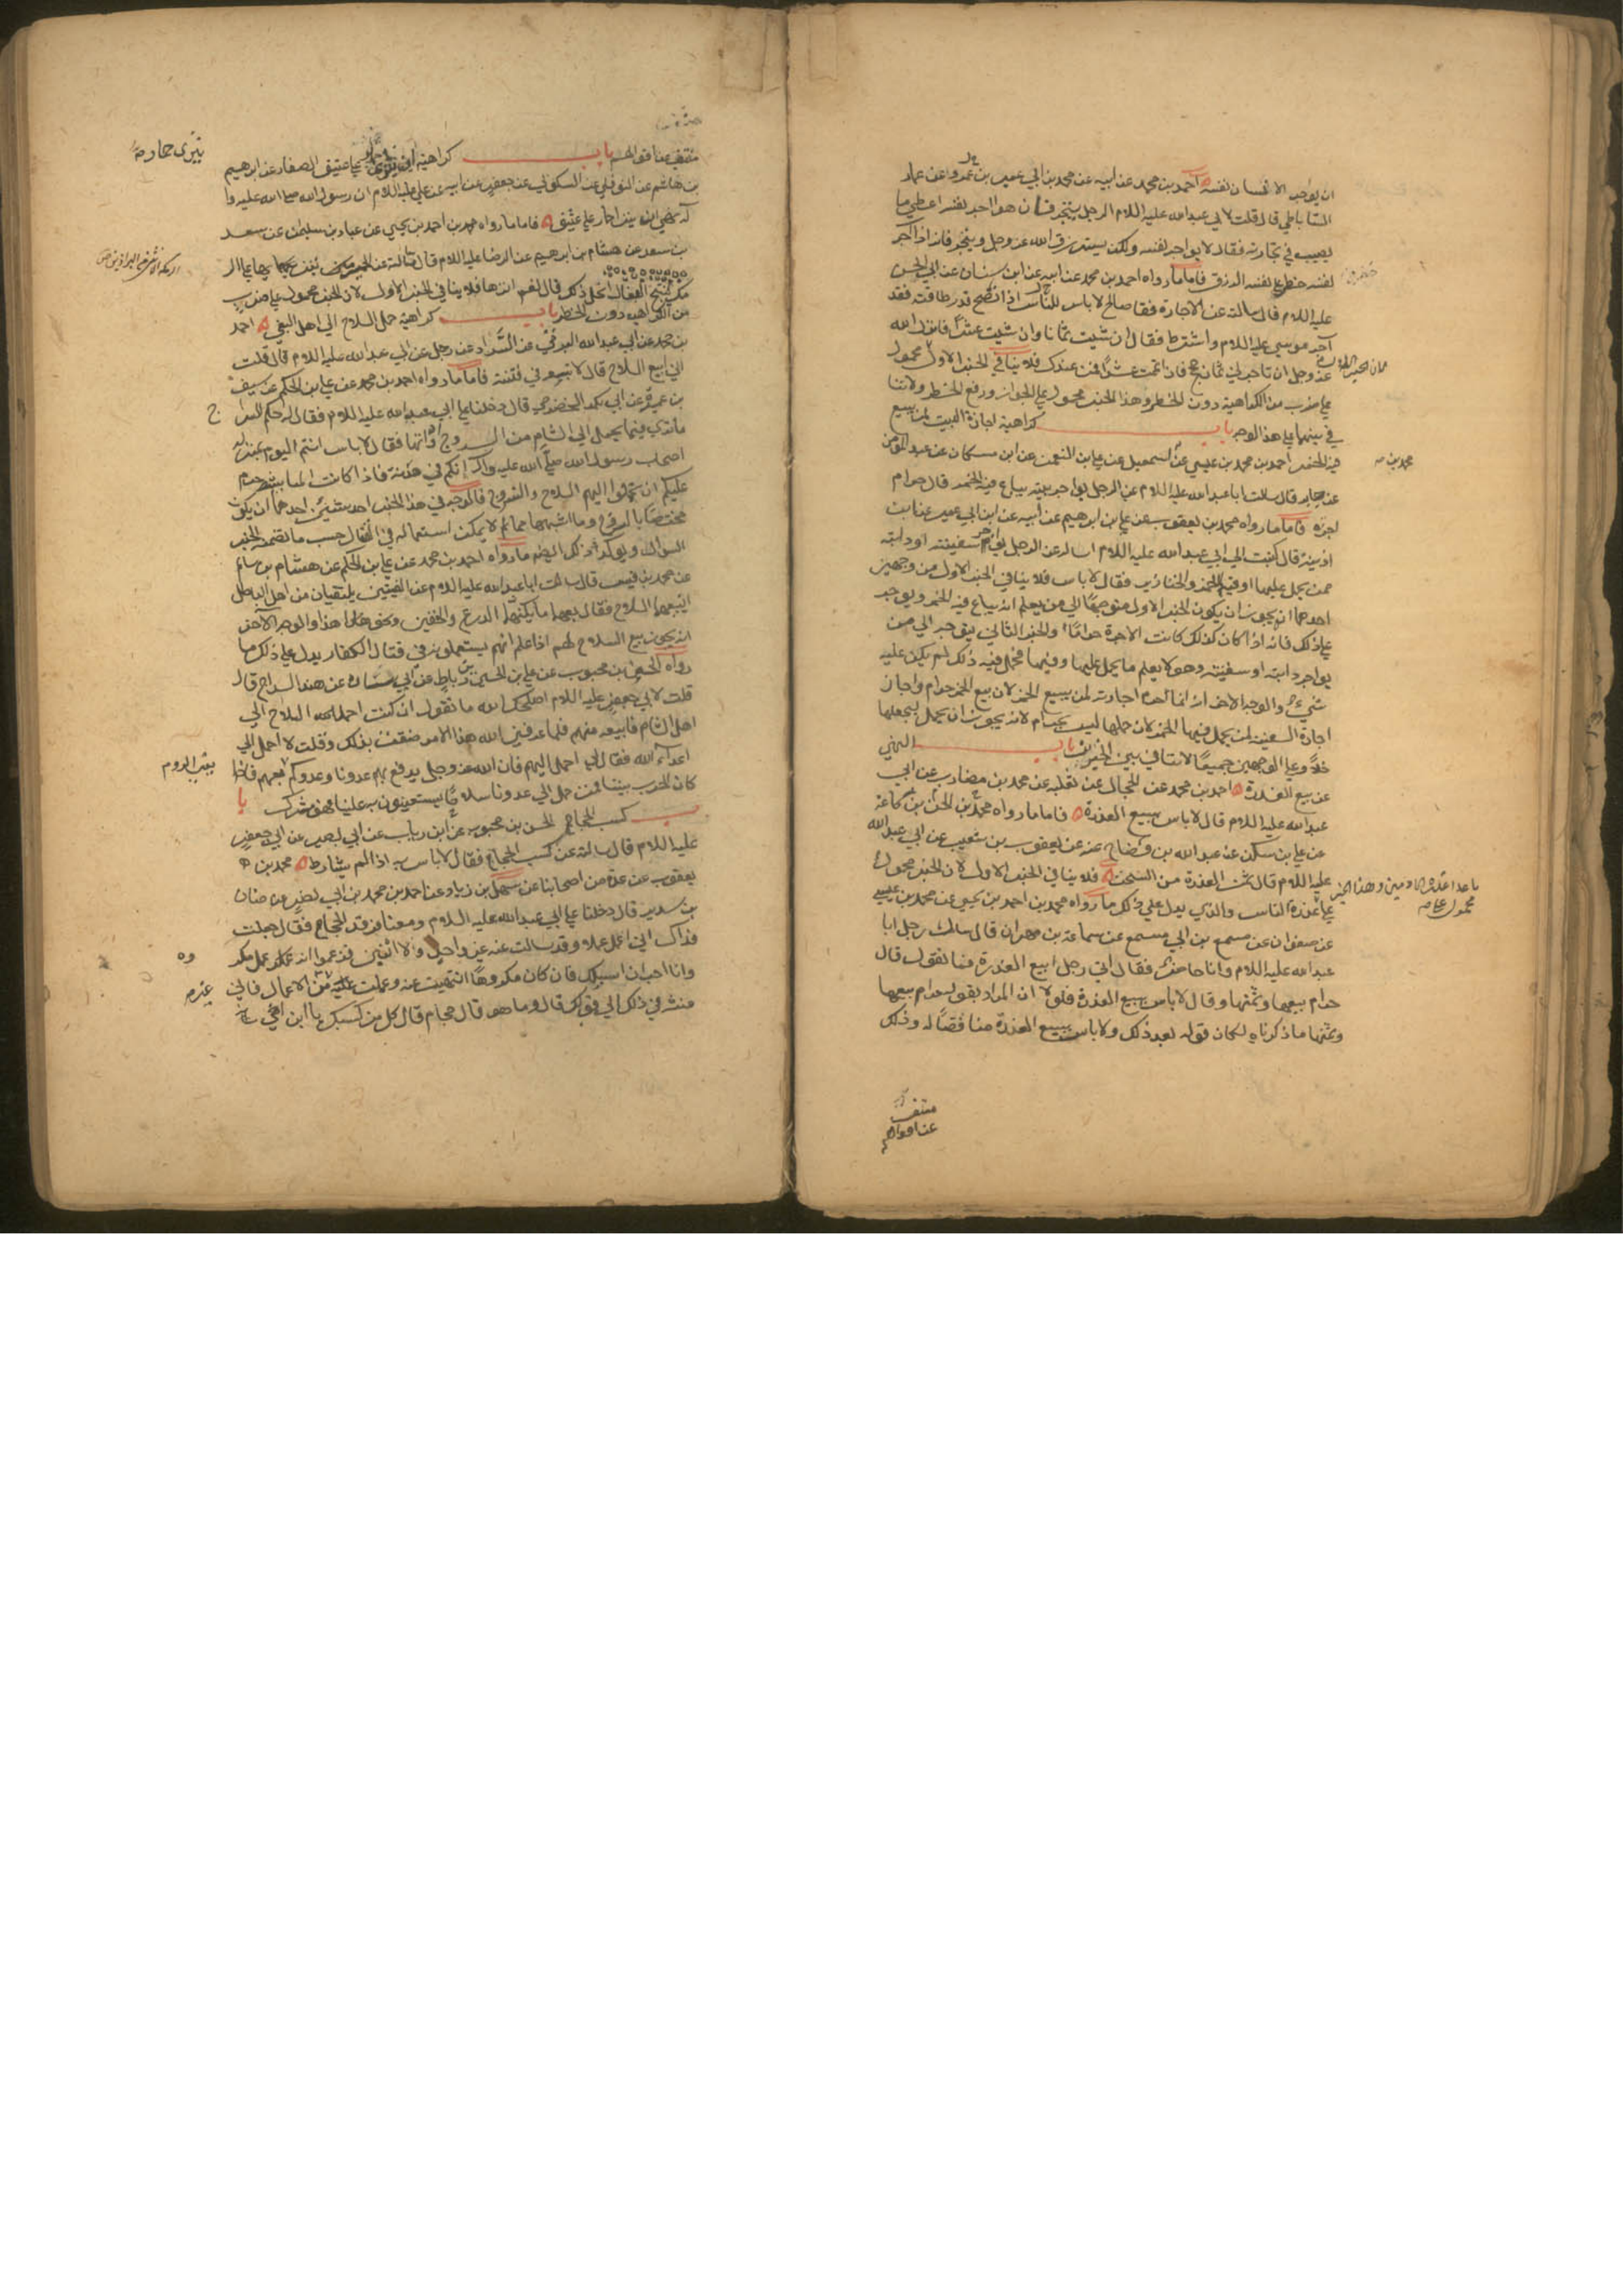 ان يواجر الانسان نفسه احمد بن محمد عن ابيه عن محمد بن ابي عمير بن عمرو عن عمار
الساباطي قال قلت لابي عبدالله عليه السلام الرجل يتجر فان هو اجر نفسه اعطي ما
يصيب في تجارته فقال لا يواجر نفسه ولكن يسترزق الله عز وجل ويتجر فانه اذا آجر
نفسه حظر علي نفسه الرزق فاما ما رواه احمد بن محمد عن ابيه عن ابن سنان عن ابي الحسن
عليه السلام قال سالته عن الاجارة فقا صالح لا باس للناس اذا نصح قدر طاقته فقد
آجر موسي عليه السلام واشترط فقال ان شيت ثمانا وان شيت عشرا فانزل الله
عز وجل ان تاجرني ثماني حجج فان اتممت عشرا فمن عندك فلا ينافي الخبر الاول محمول
علي ضرب من الكراهية دون الحظر وهذا الخبر محمول علي الجواز ورفع الحظر ولا تنا
في بينهما علي هذا الوجه باب كراهية اجارة البيت لمن يبيع
فيه الخمر احمد بن محمد بن عيسي عن اسمعيل عن علي بن النعمن عن ابن مسكان عن عبد المومن
محمد بن
عن جابر قال سالت ابا عبدالله عليه السلام عن الرجل يواجر بيته يباع فيه الخمر قال حرام
اجره فاما ما رواه محمد بن يعقوب عن علي بن ابرهيم عن ابيه عن ابن ابي عمير عن ابن
اذينه قال كتبت الي ابي عبدالله عليه السلام اساله عن الرجل يواجر سفينته او دابته
ممن يحمل عليها او فيها الخمر والخنازير فقال لا باس فلا ينافي الخبر الاول من وجهين
احدهما انه يجوز ان يكون الخبر الاول متوجها الي من يعلم انه يباع فيه الخمر ويواجر
علي ذلك فانه اذا كان كذلك كانت الاجرة حراما والخبر الثاني يتوجه الي من
يواجر دابته او سفينته وهو لا يعلم ما يحمل عليها وفيها فحمل فيه ذلك لم يكن عليه
شيء والوجه الاخر انه انما حرم اجارته لمن يبيع الخمر لان بيع الخمر حرام واجاز
اجارة السفينة لمن يحمل فيها الخمر لان حملها ليس بحرام لانه يجوز ان يحمل ليجعلها
خلا وعلي الوجهين جميعا لا تنافي بين الخبرين باب النهي
عن بيع العذرة احمد بن محمد عن الحجال عن ثعلبه عن محمد بن مضارب عن ابي
عبدالله عليه السلام قال لا باس ببيع العذرة فاما ما رواه محمد بن الحسن بن سماعة
عن علي بن سكن عن عبدالله بن وضاح عن يعقوب بن شعيب عن ابي عبدالله
عليه السلام قال ثمن العذرة من السحت فلا ينافي الخبر الاول لان الخبر محمول
ما عدا عذرة الادميين وهذا الخبر محمول علي
علي عذرة الناس والذي يدل علي ذلك ما رواه محمد بن احمد بن يحيي عن محمد بن عيسي
عن صفوان عن مسمع بن ابي مسمع عن سماعة بن مهران قال سال رجل ابا
عبدالله عليه السلام وانا حاضر فقال اني رجل ابيع العذرة فما تقول قال
حرام بيعها وثمنها وقال لا باس ببيع العذرة فلولا ان المراد بقوله حرام بيعها
وثمنها ما ذكرناه لكان قوله بعد ذلك ولا باس ببيع العذرة مناقضا له وذلك
منتف
عن اقوالهم
منتف عن اقوالهم باب كراهية ان ينزي علي عتيق الصفار عن ابرهيم
ينزي حمار
بن هاشم عن النوفلي عن السكوني عن جعفر عن ابيه عن علي عليه السلام ان رسول الله صلي الله عليه وا
له نهي ان ينزا حمار علي عتيق فاما ما رواه محمد بن احمد بن يحيي عن عباد بن سليمن عن سعد
بن سعد عن هشام بن ابرهيم عن الرضا عليه السلام قال سالته عن الحمير
لنتج البغال ايحل ذلك قال نعم انزها فلا ينافي الخبر الاول لان الخبر محمول علي ضرب
من الكراهية دون الحظر باب كراهية حمل السلاح الي اهل البغي احمد
بن محمد عن ابي عبدالله البرقي عن السراد عن رجل عن ابي عبدالله عليه السلام قال قلت
اني ابيع السلاح قال لا تبعه في فتنة فاما ما رواه احمد بن محمد عن علي بن الحكم عن سيف
بن عميرة عن ابي بكر الحضرمي قال دخلنا علي ابي عبدالله عليه السلام فقال له حكم السرا
ج
ما تري فيما يحمل الي الشام من السروج واداتها فقال لا باس انتم اليوم بمنزله
اصحاب رسول الله صلي الله عليه واله انكم في هدنة فاذا كانت المباينة حرم
عليكم ان تحملوا اليهم السلاح والسروج فالوجه في هذا الخبر احد شيئين احدهما ان يكون
مختصا بالسروج وما اشبهها مما لا يمكن استعماله في القتال حسب ما تضمنه الخبر
السؤال ويؤكد ذلك ايضا ما رواه احمد بن محمد عن علي بن الحكم عن هشام بن سالم
عن محمد بن قيس قال سالت ابا عبدالله عليه السلام عن الفيتين يلتقيان من اهل الباطل
ابيعهما السلاح فقال بعهما ما يكنهما الدرع والخفين ونحو هذا والوجه الآخر
انه يجوز بيع السلاح لهم اذا علم انهم يستعملونه في قتال الكفار يدل علي ذلك ما
رواه الحسن بن محبوب عن علي بن الحسن بن رباط عن ابي سارة عن هند السراج قال
قلت لابي جعفر عليه السلام اصلحك الله ما تقول اني كنت احمل السلاح الي
اهل الشام فابيعه منهم فلما عرفني الله هذا الامر ضقت بذلك وقلت لا احمل الي
اعداء الله فقال لي احمل اليهم فان الله عز وجل يدفع بهم عدونا وعدوكم بعهم فاذا
يعني الروم
كان الحرب بيننا فمن حمل الي عدونا سلاحا يستعينون به علينا فهو مشرك با
ب كسب الحجام الحسن بن محبوب عن ابن رياب عن ابي بصير عن ابي جعفر
عليه السلام قال سالته عن كسب الحجام فقال لا باس به اذا لم يشارط محمد بن
يعقوب عن عدة من اصحابنا عن سهل بن زياد عن احمد بن محمد بن ابي نصر عن حنان
بن سدير قال دخلنا علي ابي عبدالله عليه السلام ومعنا فرقد الحجام فقال جعلت
فداك اني اعمل عملا وقد سالت عنه غير واحد ولا اثنين فزعموا انه عمل مكر
وه
وانا احب ان اسالك فان كان مكروها انتهيت عنه وعملت غيره من الاعمال فاني
منته في ذلك الي قولك قال وما هو قال حجام قال كل من كسبك يا ابن اخي